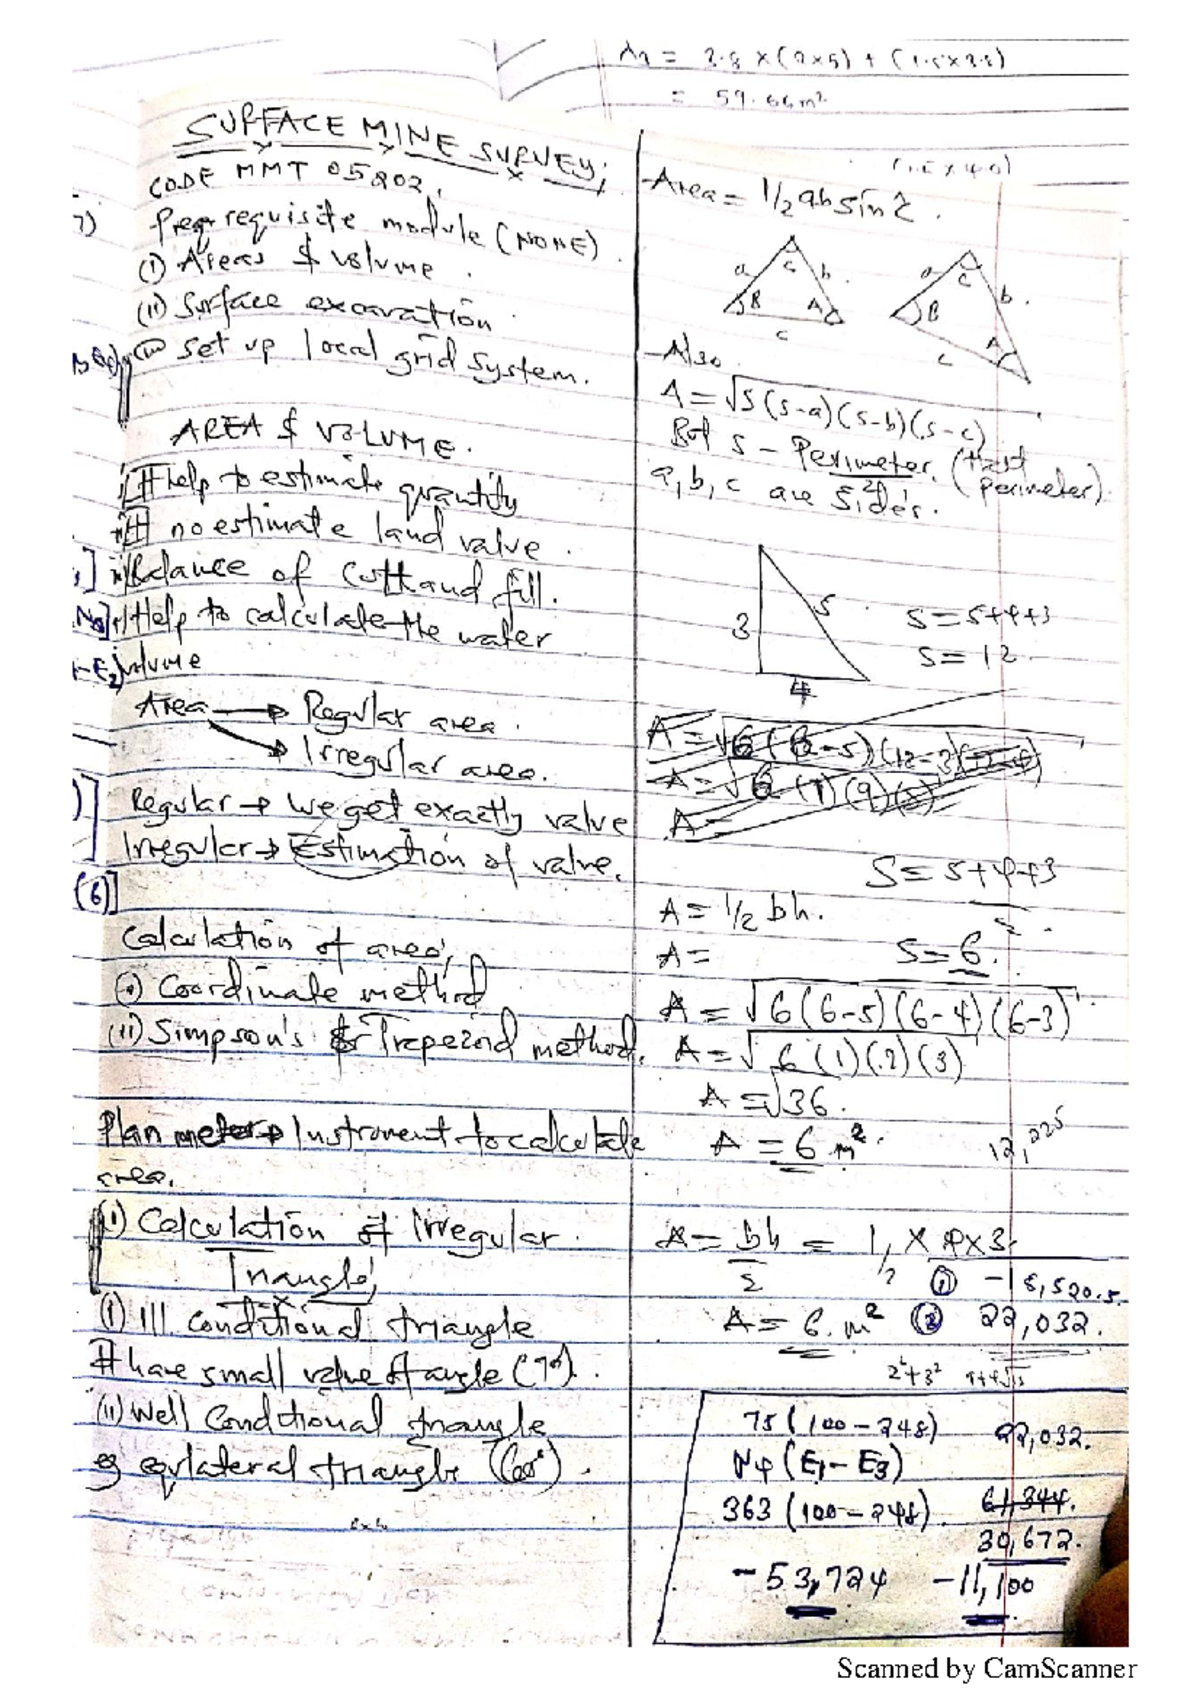 = 59.66m²
SURFACE MINE SURVEY;
CODE MMT 05202,
7)
Prerequisite module (NONE).
(i) Areas & volume.
(ii) Surface excavation.
set up local grid system.
AREA & VOLUME.
Help to estimate quantity
estimate land value.
Balance of cut and fill.
Help to calculate the water
volume
Area → Regular area.
→ Irregular area.
Regular → We get exactly value
Irregular → Estimation of value.
(6)]
Calculation of area,
Coordinate method
(ii) Simpson's & Trapezoid method.
Planmeter → Instrument to calculate
area.
(i) Calculation of Irregular
Triangle,
(i) Ill Conditional triangle
It have small value of angle
(ii) Well Conditional triangle
eg equlateral triangle (60°).
-Area = 1/2 ab sin C.
a C b
B A
c
a C
b
B
A
c
-Also.
A = √S(s-a)(s-b)(s-c)
But s - Perimeter. (Half
2
perimeter)
a, b, c are sides.
3 5
4
S = 5+4+3
S = 12
A = √6(6-5)(12-3)(12-4)
A = √6(1)(9)(8)
A =
S = 5+4+3
2
A = 1/2 bh.
A =
S = 6.
A = √6(6-5)(6-4)(6-3)
A = √6(1)(2)(3)
A = √36.
A = 6 m².
12,225
A = bh = 1/2 × 4×3
2
① -18,520.5.
A = 6. m²
② 22,032.
2²+3²
75(100-248)
22,032.
N4(E1-E3)
363(100-248)
61,344.
30,672.
-53,724
-11,100
Scanned by CamScanner